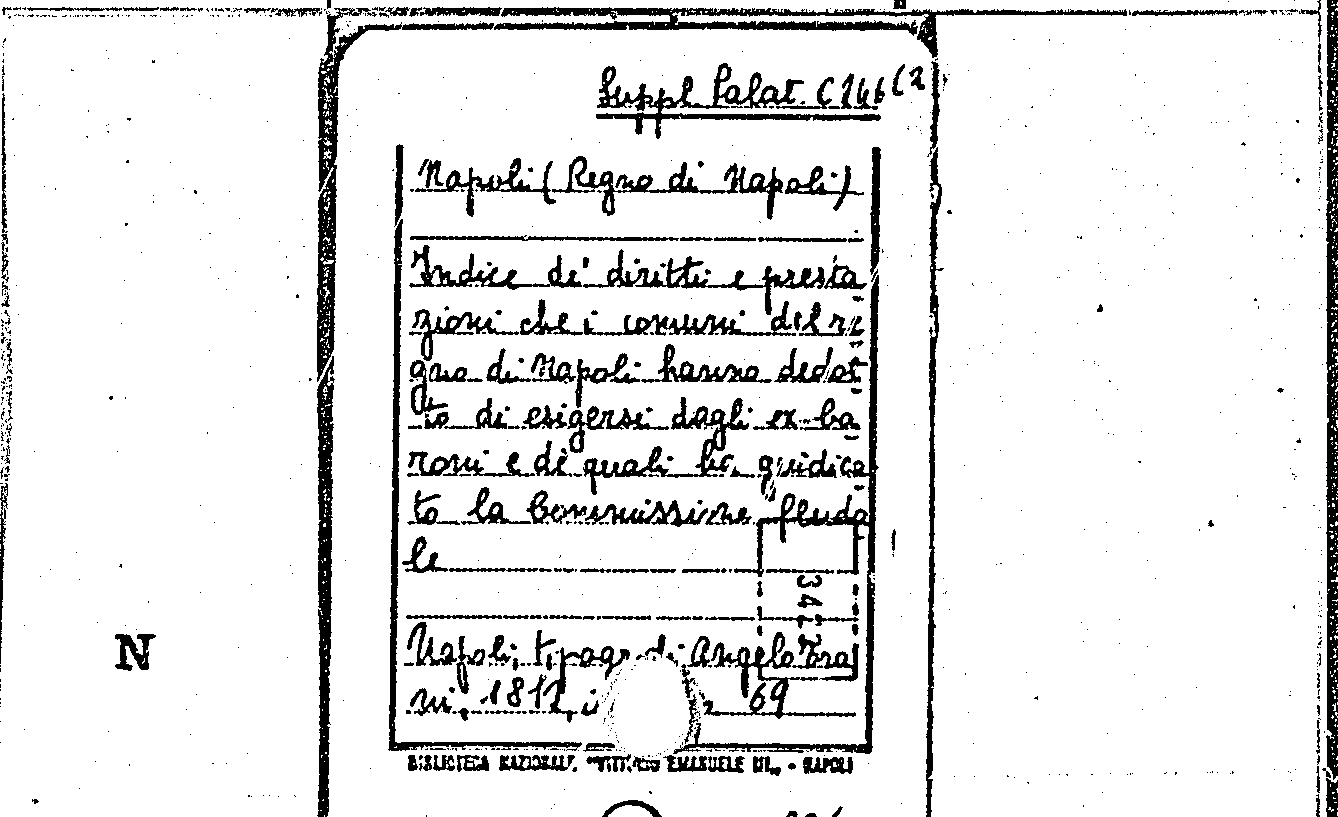 Suppl. Palat. C 146 (2
Napoli (Regno di Napoli)
Indice de' diritti e presta
zioni che i comuni del re
gno di Napoli hanno dedot
to di esigersi dagli ex-ba
roni e de' quali ha giudica
to la Commissione feuda
le
Napoli, tipogr. di Angelo Tra
ni, 1812, 69
BIBLIOTECA NAZIONALE "VITTORIO EMANUELE III" - NAPOLI
N